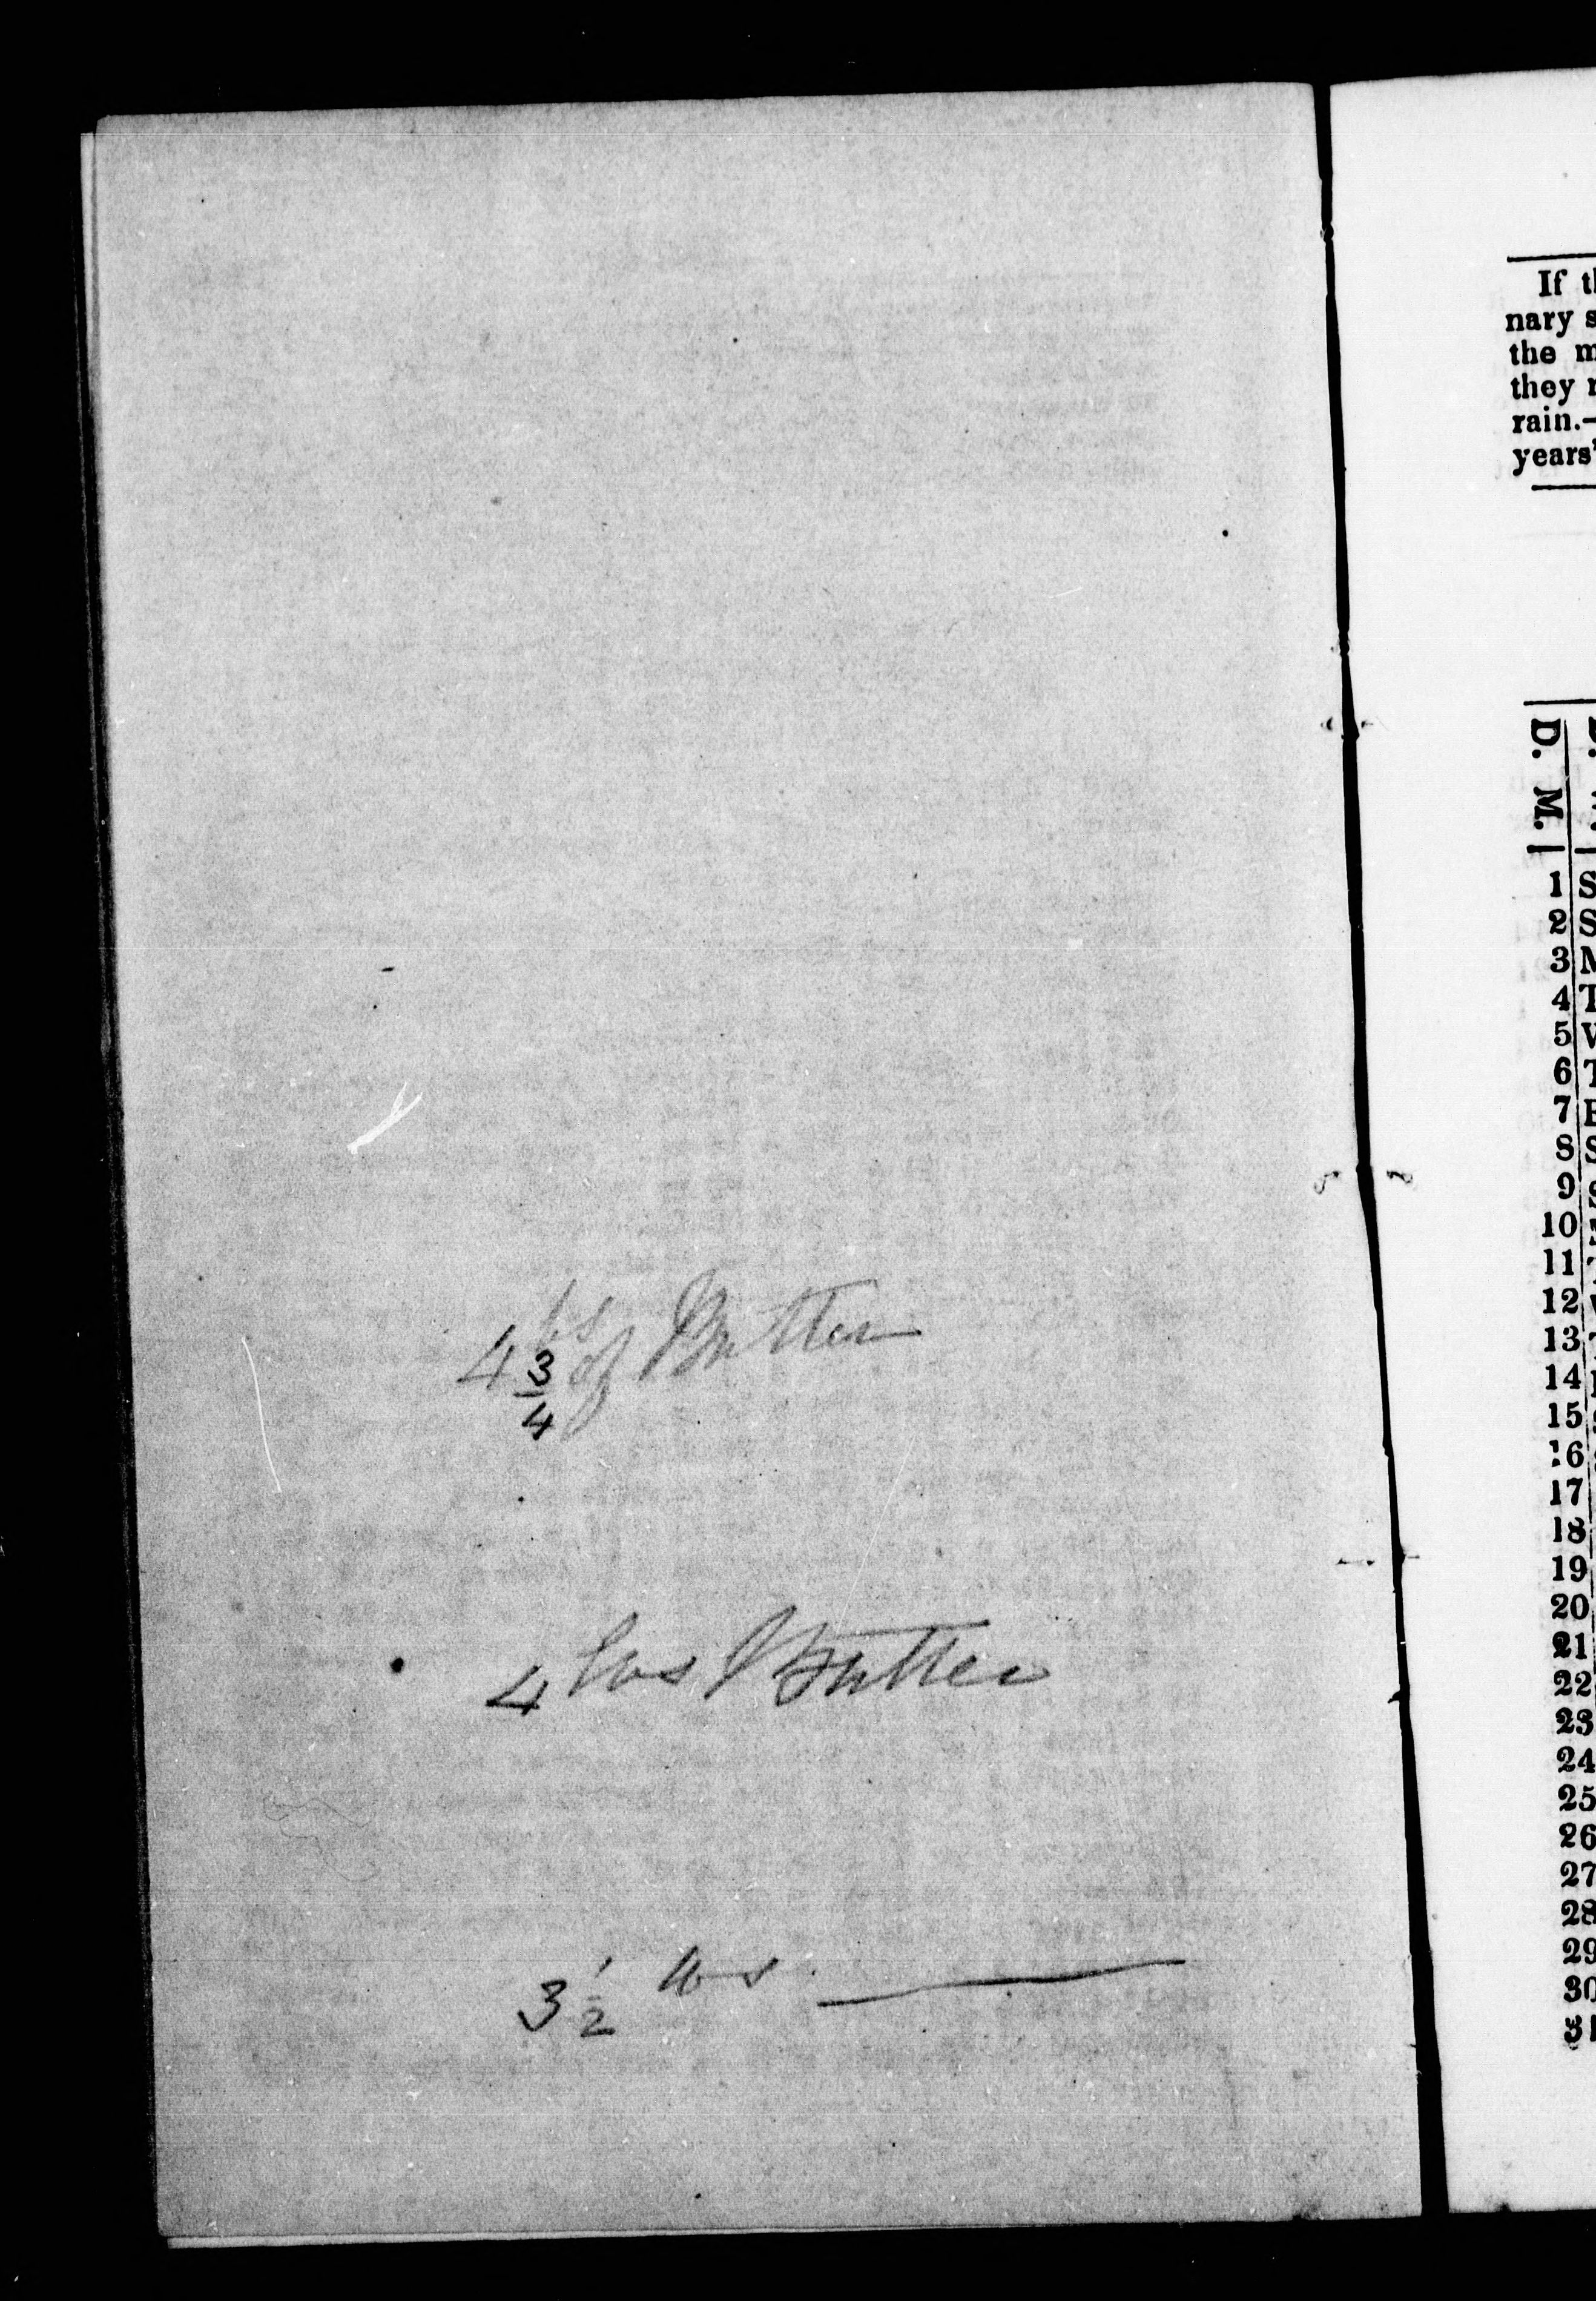 4 3/4 lbs of Butter
4 lbs Butter
3 1/2 lbs ———
If
nary
the
they
rain.—
years'
D. M.
1 S
2 S
3 M
4 T
5 W
6 T
7 F
8 S
9
10
11
12
13
14
15
16
17
18
19
20
21
22
23
24
25
26
27
28
29
30
31